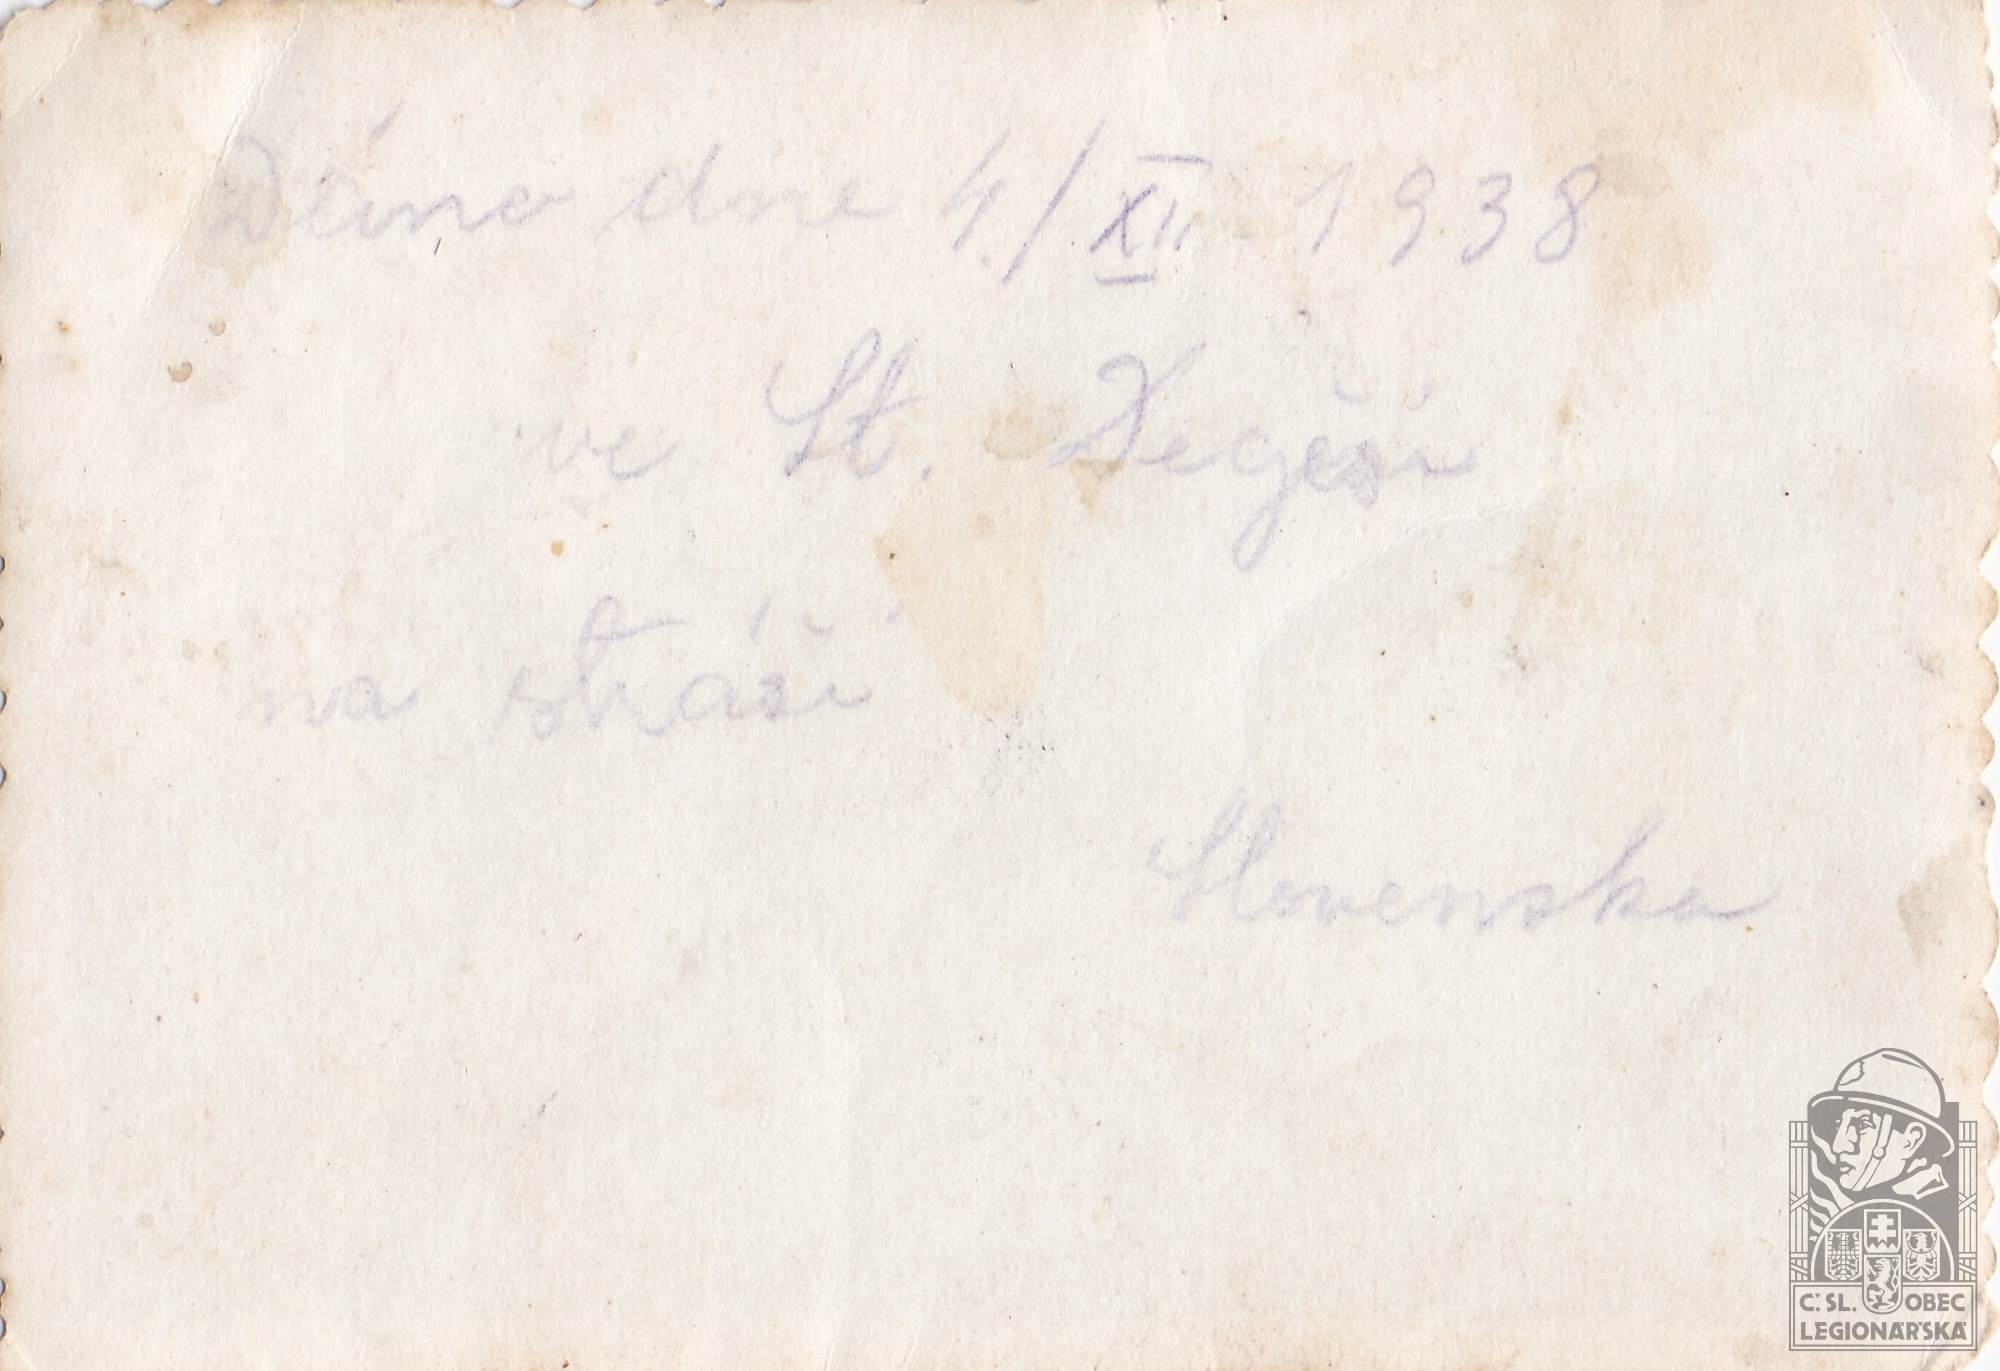 Dáno dne 4/XII. 1938
ve St. Degeši
na stráži
Slovenska
Č. SL. OBEC
LEGIONÁŘSKÁ